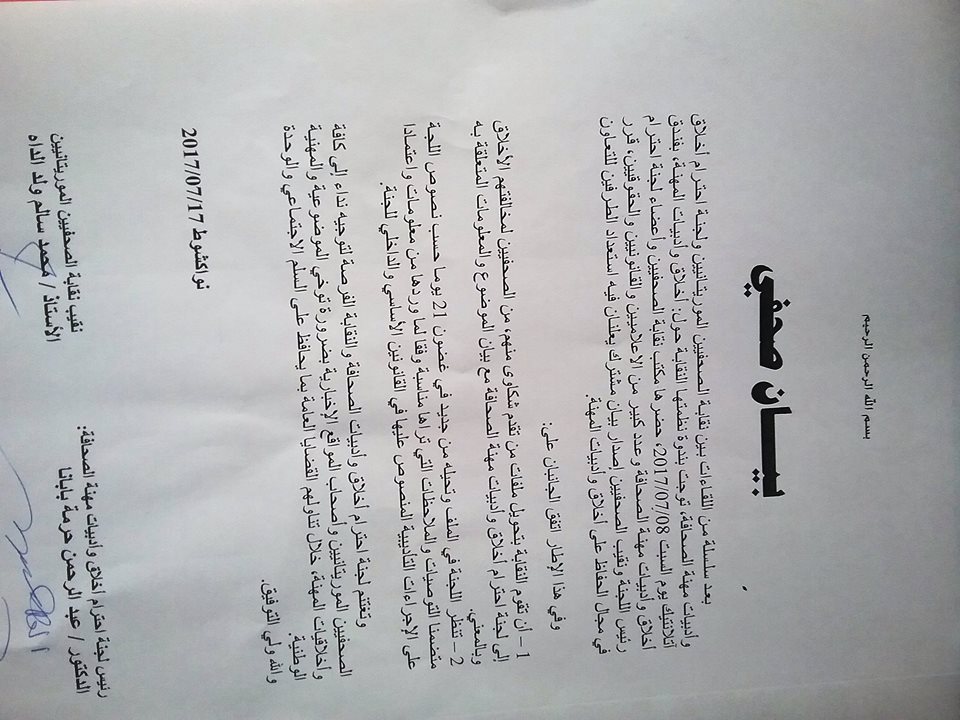 بسم الله الرحمن الرحيم
بيـــان صحفي
بعد سلسلة من اللقاءات بين نقابة الصحفيين الموريتانيين ولجنة احترام أخلاق
وأدبيات مهنة الصحافة، توجت بندوة نظمتها النقابة حول: أخلاق وأدبيات المهنة، بفندق
أتلانتيك يوم السبت 2017/07/08، حضرها مكتب نقابة الصحفيين وأعضاء لجنة احترام
أخلاق وأدبيات مهنة الصحافة وعدد كبير من الاعلاميين والقانونيين والحقوقيين، قرر
رئيس اللجنة ونقيب الصحفيين إصدار بيان مشترك يعلنان فيه استعداد الطرفين للتعاون
في مجال الحفاظ على أخلاق وأدبيات المهنة.
وفي هذا الإطار اتفق الجانبان على:
1 – أن تقوم النقابة بتحويل ملفات من تقدم شكاوى منهم، من الصحفيين لمخالفتهم الأخلاق
إلى لجنة احترام أخلاق وأدبيات مهنة الصحافة مع بيان الموضوع والمعلومات المتعلقة به
وبالمعني.
2 – تنظر اللجنة في الملف وتحيله من جديد في غضون 21 يوما حسب نصوص اللجنة
متضمنا التوصيات والملاحظات التي تراها مناسبة وفقا لما وردها من معلومات واعتمادا
على الإجراءات التأديبية المنصوص عليها في القانونين الأساسي والداخلي للجنة.
وتغتنم لجنة احترام أخلاق وأدبيات الصحافة والنقابة الفرصة لتوجيه نداء إلى كافة
الصحفيين الموريتانيين وأصحاب المواقع الإخبارية بضرورة توخي الموضوعية والمهنية
وأخلاقيات المهنة، خلال تناولهم القضايا العامة بما يحافظ على السلم الاجتماعي والوحدة
الوطنية.
والله ولي التوفيق.
نواكشوط 2017/07/17
نقيب نقابة الصحفيين الموريتانيين
الأستاذ / محمد سالم ولد الداه
رئيس لجنة احترام أخلاق وأدبيات مهنة الصحافة:
الدكتور / عبد الرحمن حرمة بابانا